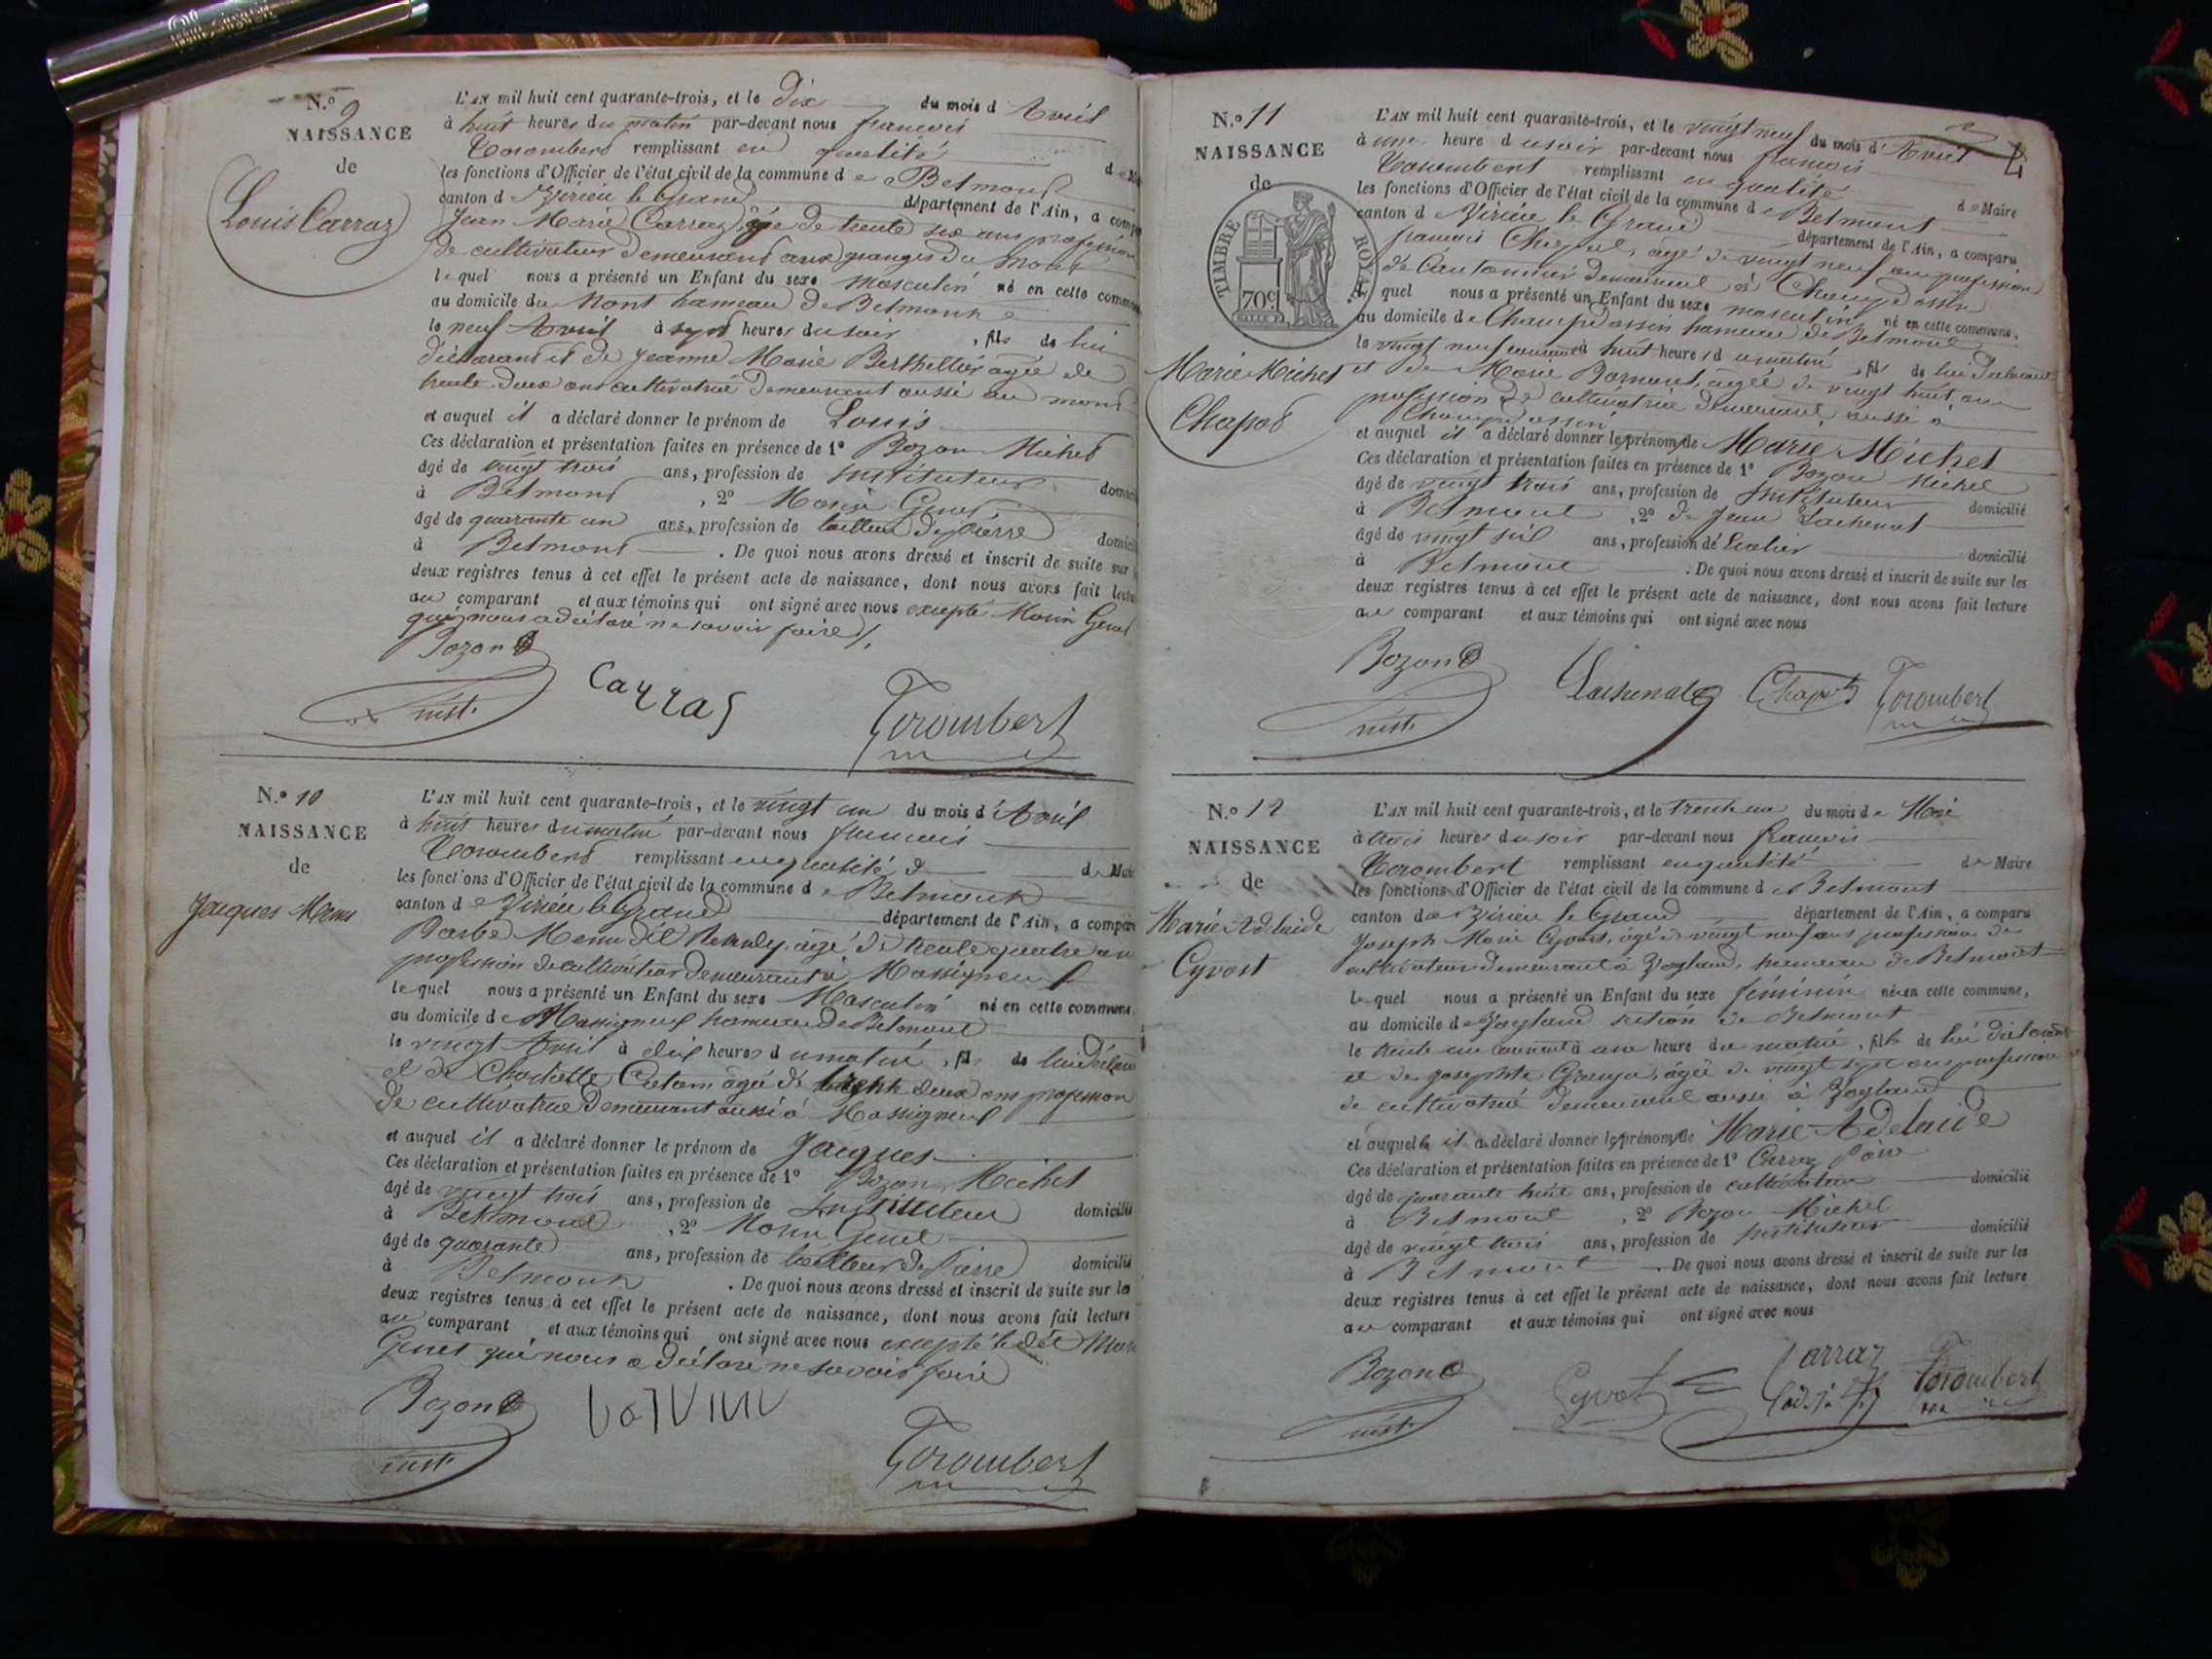 N.º 9
NAISSANCE
de
Louis Carraz
L'AN mil huit cent quarante-trois, et le dix du mois d'Avril
à huit heures du matin par-devant nous françois
Torombert remplissant en qualité de
les fonctions d'Officier de l'état civil de la commune de Belmont
canton de Virieu le Grand département de l'Ain, a comp
Jean Marie Carraz âgé de trente six ans profession
de cultivateur demeurant aux granges du Mont
lequel nous a présenté un Enfant du sexe masculin né en cette commune
au domicile du Mont hameau de Belmont
le neuf Avril à sept heures du soir, fils de lui
déclarant et de Jeanne Marie Berthellier âgée de
trente deux ans cultivatrice demeurant aussi au mont
et auquel il a déclaré donner le prénom de Louis
Ces déclaration et présentation faites en présence de 1º Bozon Michel
âgé de vingt trois ans, profession de Instituteur domicil
à Belmont, 2º Morin Genet
âgé de quarante un ans, profession de tailleur de pierre domicil
à Belmont. De quoi nous avons dressé et inscrit de suite sur
deux registres tenus à cet effet le présent acte de naissance, dont nous avons fait lectu
au comparant et aux témoins qui ont signé avec nous excepté Morin Genet
qui nous a déclaré ne savoir faire /.
Bozon
inst.
Carras
Torombert
N.º 10
NAISSANCE
de
Jacques Memi
L'AN mil huit cent quarante-trois, et le vingt un du mois d'Avril
à huit heures du matin par-devant nous francois
Torombert remplissant en qualité de Mai
les fonctions d'Officier de l'état civil de la commune de Belmont
canton de Virieu le Grand département de l'Ain, a compar
Barbe âgé de trente quatre an
profession de cultivateur demeurant à Massigneul
lequel nous a présenté un Enfant du sexe Masculin né en cette commune,
au domicile de Massigneul hameau de Belmont
le vingt Avril à dix heures du matin, fils de lui déclara
et de Claudette âgée de trente deux ans profession
de cultivatrice demeurant aussi à Massigneul
et auquel il a déclaré donner le prénom de Jacques
Ces déclaration et présentation faites en présence de 1º Bozon Michel
âgé de vingt trois ans, profession de Instituteur domicilié
à Belmont, 2º Morin Genet
âgé de quarante ans, profession de tailleur de Pierre domicilié
à Belmont. De quoi nous avons dressé et inscrit de suite sur les
deux registres tenus à cet effet le présent acte de naissance, dont nous avons fait lecture
au comparant et aux témoins qui ont signé avec nous excepté le dit Morin
Genet qui nous a déclaré ne savoir faire
Bozon
inst.
Torombert
N.º 11
NAISSANCE
de
TIMBRE ROYAL
70 c
Marie Michel
Chapot
4
L'AN mil huit cent quarante-trois, et le vingt neuf du mois d'Avril
à une heure du soir par-devant nous françois
Torombert remplissant en qualité de Maire
les fonctions d'Officier de l'état civil de la commune de Belmont
canton de Virieu le Grand département de l'Ain, a comparu
françois Chapot, âgé de vingt neuf ans profession
de Cantonnier demeurant à Champdossin
lequel nous a présenté un Enfant du sexe masculin né en cette commune,
au domicile de Champdossin hameau de Belmont
le vingt neuf courant à huit heures du matin, fils de lui déclarant
et de Marie Bornant, âgée de vingt huit ans
profession de cultivatrice demeurant aussi à
Champdossin
et auquel il a déclaré donner les prénoms de Marie Michel
Ces déclaration et présentation faites en présence de 1º Bozon Michel
âgé de vingt trois ans, profession de Instituteur domicilié
à Belmont, 2º de Jean Lachenal
âgé de vingt six ans, profession de domicilié
à Belmont. De quoi nous avons dressé et inscrit de suite sur les
deux registres tenus à cet effet le présent acte de naissance, dont nous avons fait lecture
au comparant et aux témoins qui ont signé avec nous
Bozon
inst.
Lachenal Chapot Torombert
N.º 12
NAISSANCE
de
Marie Adelaide
Cyvost
L'AN mil huit cent quarante-trois, et le trente un du mois de Mai
à trois heures du soir par-devant nous francois
Torombert remplissant en qualité de Maire
les fonctions d'Officier de l'état civil de la commune de Belmont
canton de Virieu le Grand département de l'Ain, a comparu
Joseph Marie Cyvost, âgé de vingt neuf ans profession de
cultivateur demeurant à Vogland, hameau de Belmont
lequel nous a présenté un Enfant du sexe féminin née en cette commune,
au domicile de Vogland section de Belmont
le trente un courant à une heure du matin, fille de lui déclarant
et de Josephte Granger, âgée de vingt sept ans profession
de cultivatrice demeurant aussi à Vogland
et auquelle il a déclaré donner les prénoms de Marie Adelaide
Ces déclaration et présentation faites en présence de 1º Carraz
âgé de quarante huit ans, profession de cultivateur domicilié
à Belmont, 2º Bozon Michel
âgé de vingt trois ans, profession de Instituteur domicilié
à Belmont. De quoi nous avons dressé et inscrit de suite sur les
deux registres tenus à cet effet le présent acte de naissance, dont nous avons fait lecture
au comparant et aux témoins qui ont signé avec nous
Bozon
inst.
Cyvot Carraz Torombert